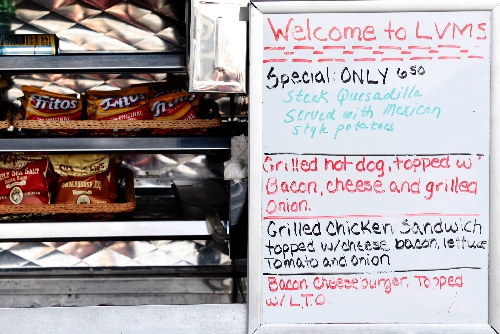 Welcome to LVMS
Special: ONLY 6.50
Steak Quesadilla
Served with Mexican
style potatoes
Grilled hot dog, topped w/
Bacon, cheese and grilled
Onion.
Grilled Chicken Sandwich
topped w/cheese, bacon, lettuce
Tomato and onion
Bacon Cheeseburger, Topped
w/L.T.O.
Fritos
Fritos
Fritos
Sea Salt